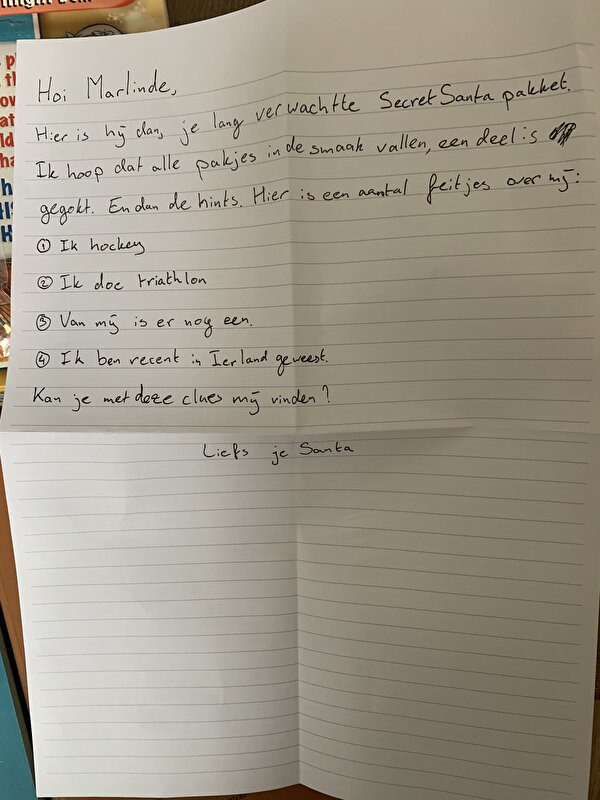 Hoi Marlinde,
Hier is hij dan, je lang verwachtte Secret Santa pakket.
Ik hoop dat alle pakjes in de smaak vallen, een deel is
gegokt. En dan de hints. Hier is een aantal feitjes over mij:
① Ik hockey
② Ik doe triathlon
③ Van mij is er nog een.
④ Ik ben recent in Ierland geweest.
Kan je met deze clues mij vinden?
Liefs je Santa